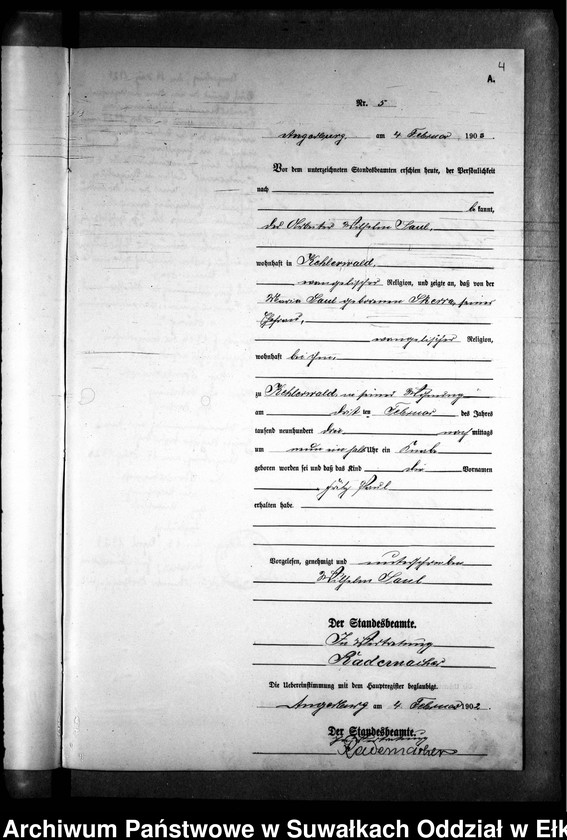 4
A.
Nr. 5
Angerburg, am 4 Februar 1903
Vor dem unterzeichneten Standesbeamten erschien heute, der Persönlichkeit
nach
be kannt,
der Wilhelm Saul,
wohnhaft in Kehlerwald,
evangelischer Religion, und zeigte an, daß von der
Maria Saul geborenen Skerra, seiner
Ehefrau,
evangelischer Religion,
wohnhaft bei ihm
zu Kehlerwald in seiner Wohnung
am drit ten Februar des Jahres
tausend neunhundert drei nach mittags
um neun ein halb Uhr ein Knabe
geboren worden sei und daß das Kind die Vornamen
Fritz Paul
erhalten habe.
Vorgelesen, genehmigt und unterschrieben
Wilhelm Saul
Der Standesbeamte.
In Vertretung
Rademacher
Die Uebereinstimmung mit dem Hauptregister beglaubigt.
Angerburg am 4. Februar 1903
Der Standesbeamte.
In Vertretung
Rademacher
Archiwum Państwowe w Suwałkach Oddział w Ełk